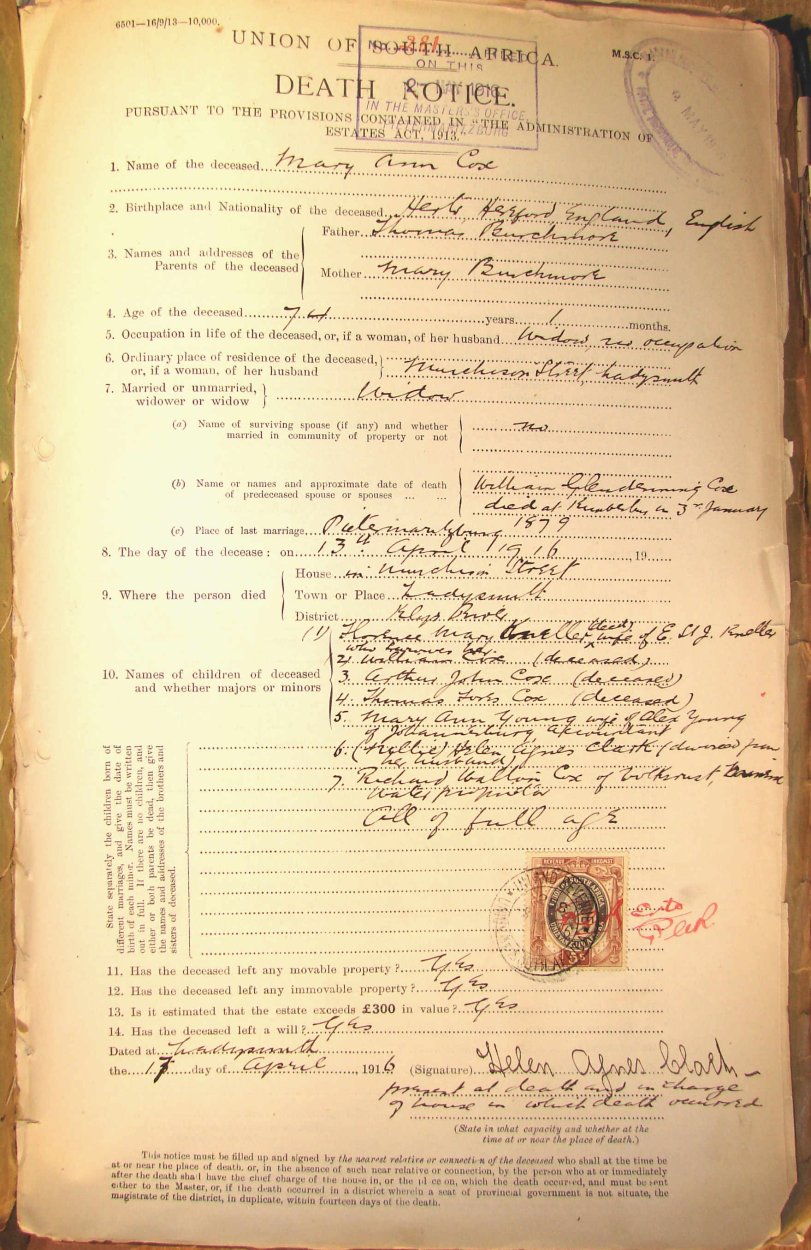 6501—16/9/13—10,000.
UNION OF SOUTH AFRICA.
M.S.C. 1.
No. 381
ON THIS
MAY 1916
IN THE MASTER'S OFFICE
DEATH NOTICE.
PURSUANT TO THE PROVISIONS CONTAINED IN "THE ADMINISTRATION OF
ESTATES ACT, 1913."
1. Name of the deceased Mary Ann Cox
2. Birthplace and Nationality of the deceased Herts, Hereford England, English
3. Names and addresses of the Parents of the deceased
Father Thomas Burchmore
Mother Mary Burchmore
4. Age of the deceased 74 years 1 months.
5. Occupation in life of the deceased, or, if a woman, of her husband Widow, no occupation
6. Ordinary place of residence of the deceased,
or, if a woman, of her husband Murchison Street, Ladysmith
7. Married or unmarried,
widower or widow Widow
(a) Name of surviving spouse (if any) and whether
married in community of property or not no
(b) Name or names and approximate date of death
of predeceased spouse or spouses ... ... William Glendenning Cox
died at Kimberley on 3rd January
1879
(c) Place of last marriage Pietermaritzburg
8. The day of the decease: on 13th April 1916, 19
9. Where the person died
House in Murchison Street
Town or Place Ladysmith
District Klip River
10. Names of children of deceased
and whether majors or minors
(1) Florence Mary Kneller (decd) wife of E. St J. Kneller
who survives her.
2. William Cox (deceased)
3. Arthur John Cox (deceased)
4. Thomas Cox (deceased)
5. Mary Ann Young wife of Alex Young
of Johannesburg Accountant
6. (Nellie) Helen Agnes Clark (divorced from
her husband)
7. Richard Walton Cox of Volksrust,
water proprietor
All of full age
State separately the children born of
different marriages, and give the date of
birth of each minor. Names must be written
out in full. If there are no children, and
either or both parents be dead, then give
the names and addresses of the brothers and
sisters of deceased.
REVENUE INKOMST
11. Has the deceased left any movable property? Yes
12. Has the deceased left any immovable property? Yes
13. Is it estimated that the estate exceeds £300 in value? Yes
14. Has the deceased left a will? Yes
Dated at Ladysmith
the 17 day of April 1916 (Signature) Helen Agnes Clark
present at death and in charge
of house in which death occurred
(State in what capacity and whether at the
time at or near the place of death.)
This notice must be filled up and signed by the nearest relative or connection of the deceased who shall at the time be
at or near the place of death, or, in the absence of such near relative or connection, by the person who at or immediately
after the death shall have the chief charge of the house in, or the place on, which the death occurred, and must be sent
either to the Master, or, if the death occurred in a district wherein a seat of provincial government is not situate, the
magistrate of the district, in duplicate, within fourteen days of the death.